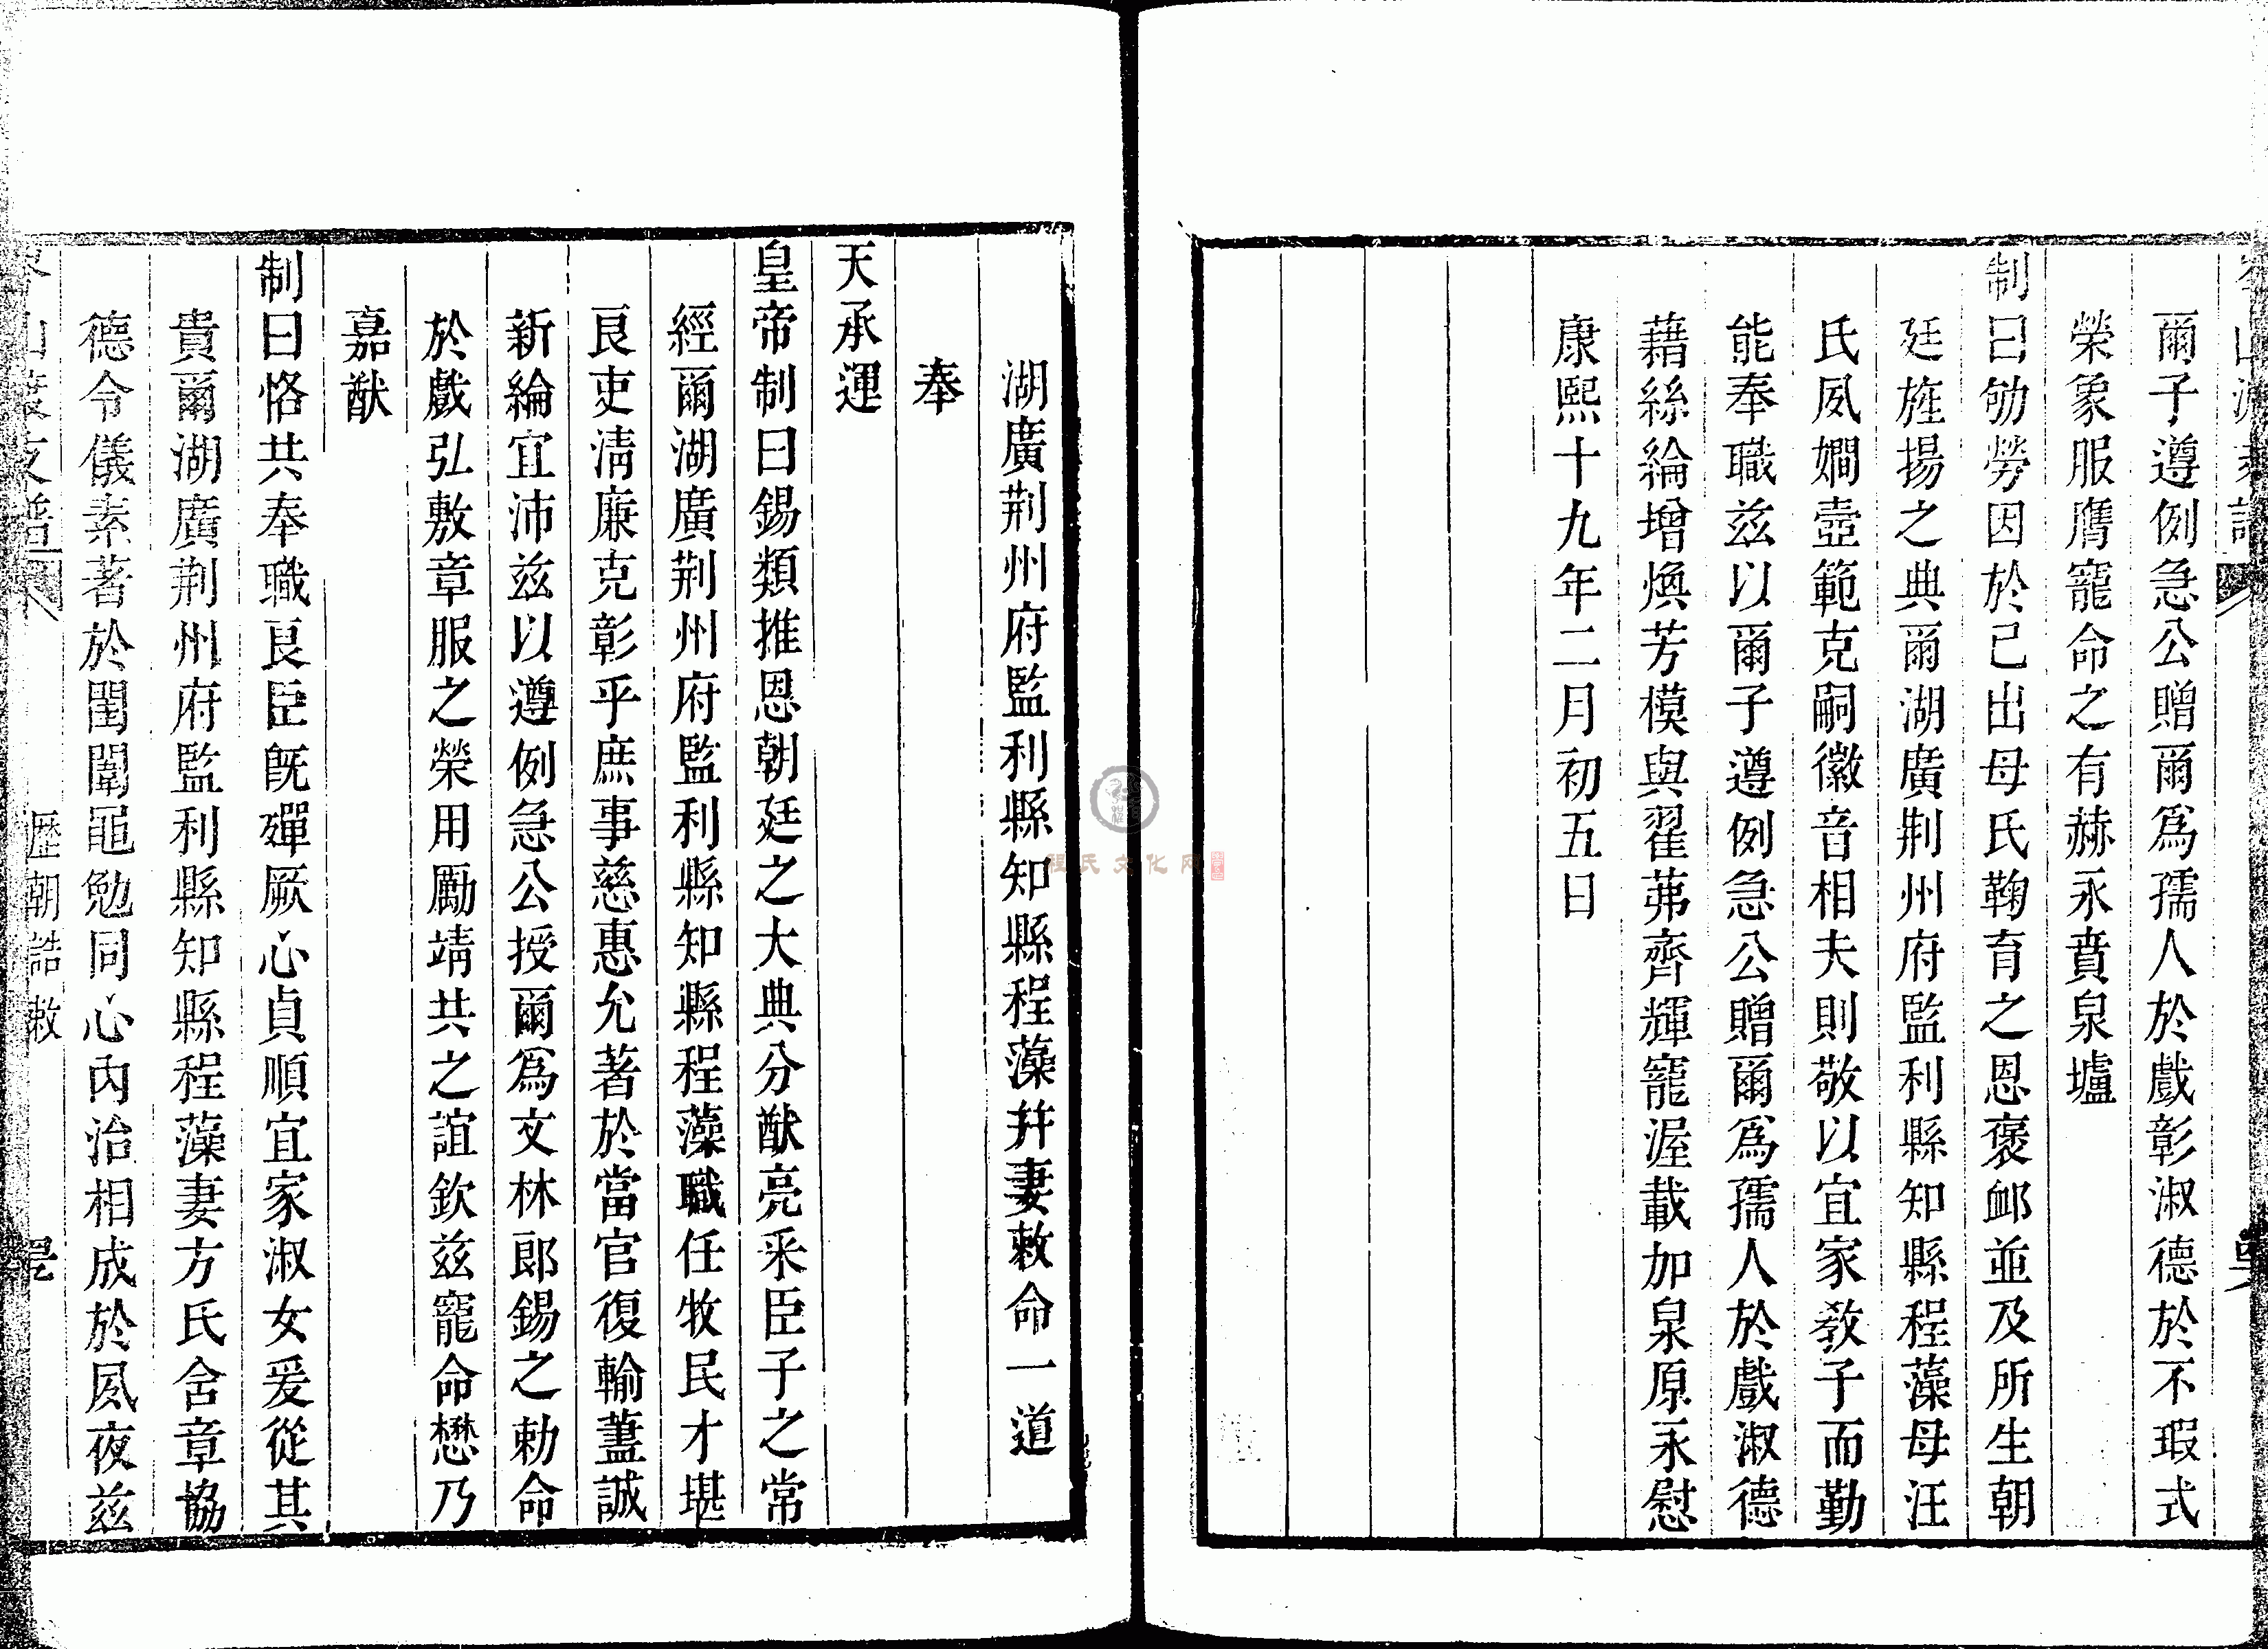 爾子遵例急公贈爾爲孺人於戲彰淑德於不瑕式
榮象服膺寵命之有赫永賁泉壚
制曰劬勞因於己出母氏鞠育之恩褒䘏並及所生朝
廷旌揚之典爾湖廣荆州府監利縣知縣程藻母汪
氏夙嫻壼範克嗣徽音相夫則敬以宜家敎子而勤
能奉職玆以爾子遵例急公贈爾爲孺人於戲淑德
藉絲綸增煥芳模與翟茀齊輝寵渥載加泉原永慰
康熙十九年二月初五日
湖廣荆州府監利縣知縣程藻幷妻敕命一道
奉
天承運
皇帝制曰錫類推恩朝廷之大典分猷亮采臣子之常
經爾湖廣荆州府監利縣知縣程藻職任牧民才堪
良吏淸廉克彰乎庶事慈惠允著於當官復輸藎誠
新綸宜沛玆以遵例急公授爾爲文林郎錫之勅命
於戲弘敷章服之榮用勵靖共之誼欽玆寵命懋乃
嘉猷
制曰恪共奉職良臣旣殫厥心貞順宜家淑女爰從其
貴爾湖廣荆州府監利縣知縣程藻妻方氏含章協
德令儀素著於閨闈黽勉同心內治相成於夙夜玆
歷朝誥敕
程氏文化网